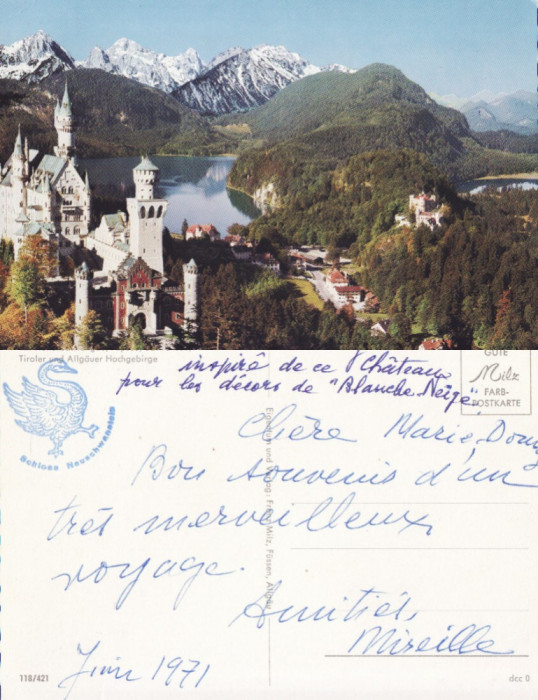 Tiroler und Allgäuer Hochgebirge
inspiré de ce Château
pour les décors de "Blanche-Neige".
GUTE
Milz
FARB-
POSTKARTE
Schloss Neuschwanstein
Chère Marie,
Bon souvenir d'un
très merveilleux
voyage.
Amitiés,
Mireille
Juin 1971
Eigentum und Verlag: Franz Milz, Füssen, Allgäu
118/421
dcc 0